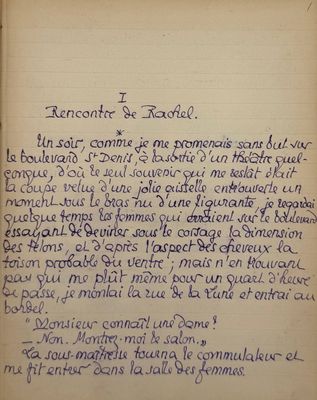 I
Rencontre de Rachel.
*
Un soir, comme je me promenais sans but sur
le boulevard St Denis, à la sortie d'un théâtre quel-
conque, d'où le seul souvenir qui me restât était
la coupe velue d'une jolie aisselle entr'ouverte un
moment sous le bras nu d'une figurante, je regardai
quelque temps les femmes qui erraient sur le boulevard
essayant de deviner sous le corsage la dimension
des tétons, et d'après l'aspect des cheveux la
toison probable du ventre ; mais n'en trouvant
pas qui me plût même pour un quart d'heure
de passe, je montai la rue de la Lune et entrai au
bordel.
"Monsieur connaît une dame?
— Non. Montrez-moi le salon."
La sous-maîtresse tourna le commutateur et
me fit entrer dans la salle des femmes.